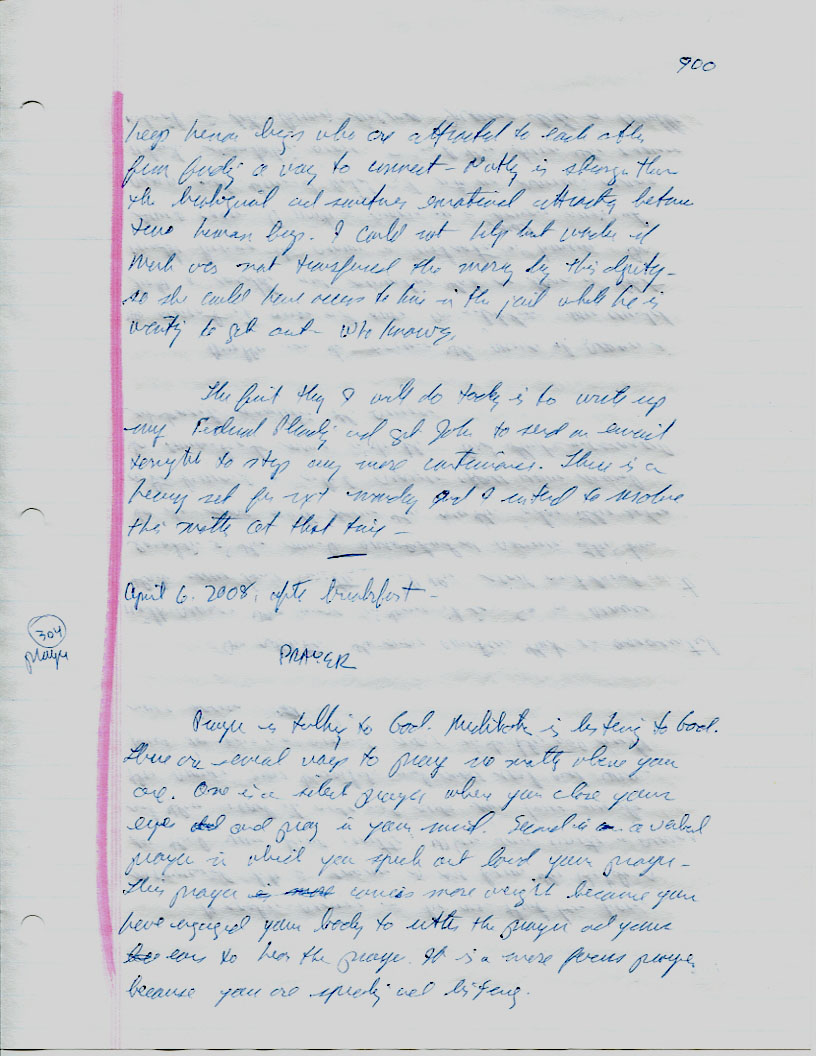 900
keep human beings who are attracted to each other
from finding a way to connect - Nothing is stronger than
the biological and sometimes emotional attraction between
two human beings. I could not help but wonder if
was not transferred the morning by this deputy -
so she could have access to him in the jail while he is
waiting to get out - who knows.
The first thing I will do today is to write up
my Federal Pleading and get John to send an email
tonight to stop any more continuances. There is a
hearing set for next monday and I intend to resolve
this matter at that time -
April 6, 2008, after breakfast -
304
prayer
PRAYER
Prayer is talking to God. Meditation is listening to God.
There are several ways to pray no matter where you
are. One is a silent prayer where you close your
eyes and pray in your mind. Second is a verbal
prayer in which you speak out loud your prayer -
This prayer carries more weight because you
have engaged your body to utter the prayer and your
ears to hear the prayer. It is a more focus prayer
because you are speaking and listening.